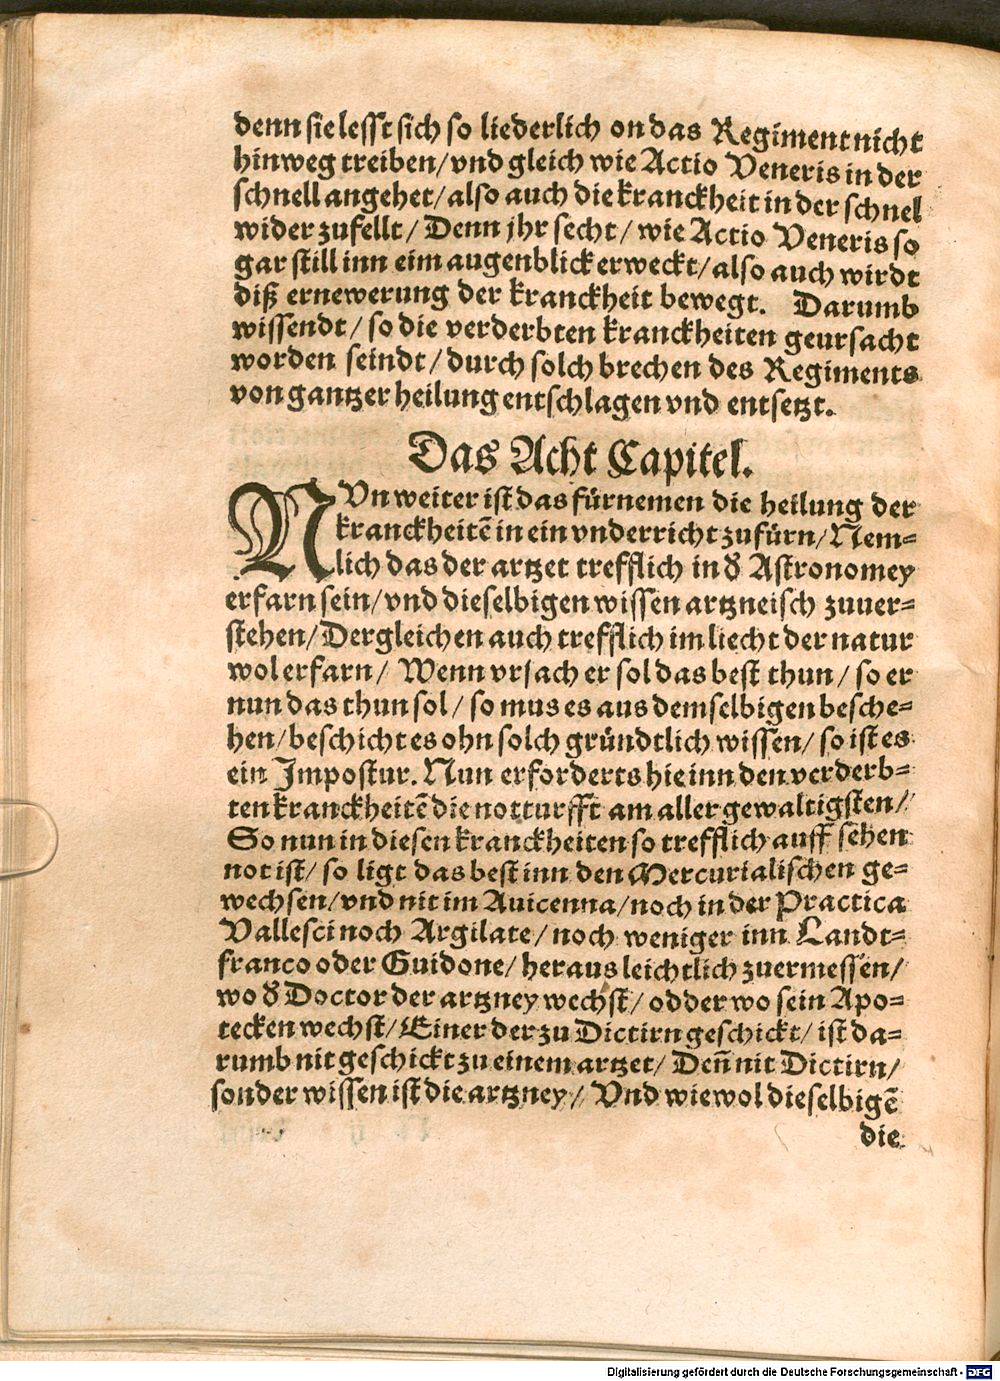 denn sie lesst sich so liederlich on das Regiment nicht
hinweg treiben/ vnd gleich wie Actio Veneris in der
schnell angehet/ also auch die kranckheit in der schnel
wider zufellt/ Denn jhr secht/ wie Actio Veneris so
gar still inn eim augenblick erweckt/ also auch wirdt
diß ernewerung der kranckheit bewegt. Darumb
wissendt/ so die verderbten kranckheiten geursacht
worden seindt/ durch solch brechen des Regiments
von gantzer heilung entschlagen vnd entsetzt.
Das Acht Capitel.
NVn weiter ist das fürnemen die heilung der
kranckheitē in ein vnderricht zufürn/ Nem=
lich das der artzet trefflich in d Astronomey
erfarn sein/ vnd dieselbigen wissen artzneisch zuuer=
stehen/ Dergleichen auch trefflich im liecht der natur
wol erfarn/ Wenn vrsach er sol das best thun/ so er
nun das thun sol/ so mus es aus demselbigen besche=
hen/ beschicht es ohn solch gründtlich wissen/ so ist es
ein Impostur. Nun erforderts hie inn den verderb=
ten kranckheitē die notturfft am aller gewaltigsten/
So nun in diesen kranckheiten so trefflich auff sehen
not ist/ so ligt das best inn den Mercurialischen ge=
wechsen/ vnd nit im Auicenna/ noch in der Practica
Vallesci noch Argilate/ noch weniger inn Landt=
franco oder Guidone/ heraus leichtlich zuermessen/
wo d Doctor der artzney wechst/ odder wo sein Apo=
tecken wechst/ Einer der zu Dictirn geschickt/ ist da=
rumb nit geschickt zu einem artzet/ Deñ nit Dictirn/
sonder wissen ist die artzney/ Vnd wiewol dieselbigē
die
Digitalisierung gefördert durch die Deutsche Forschungsgemeinschaft - DFG